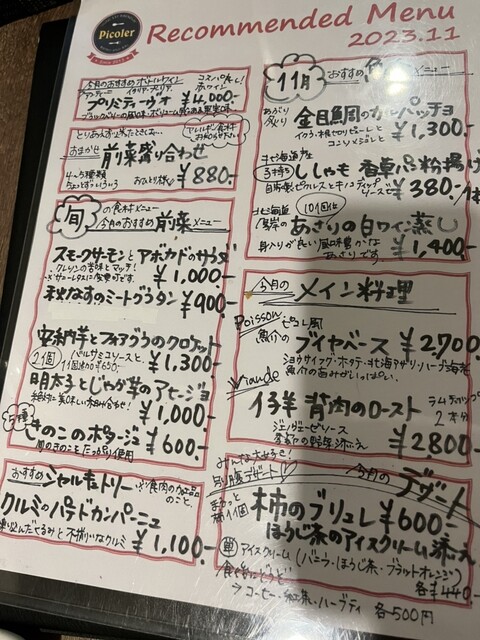 Picoler
Recommended Menu
2023.11
今月のおすすめボトルワイン
プリミティーヴォ ¥4,000-
とりあえず
アレルギー食材
お知らせ下さい
おまかせ 前菜盛り合わせ
4〜5種類
ちょっとずついろいろ
おひとり様 ¥880-
旬の食材メニュー
今月のおすすめ前菜メニュー
スモークサーモンとアボカドのサラダ
¥1,000-
秋なすのミートグラタン ¥900-
安納芋とフォアグラのクロケット
2個 バルサミコソースと
1個追加¥650- ¥1,300-
明太子とじゃが芋のアヒージョ
¥1,000-
きのこのポタージュ
¥600-
おすすめシャルキュトリー
※食肉の加工品
のこと。
クルミのパテドカンパーニュ
¥1,100-
11月 おすすめ魚メニュー
金目鯛のカルパッチョ
¥1,300-
北海道産
子持ち ししゃも香草パン粉揚げ
¥380-/1本
北海道
あさりの白ワイン蒸し
¥1,400-
今月の メイン料理
Poisson
魚介の ブイヤベース ¥2,700
Viande
仔羊 背肉のロースト
ラムチョップ
2本分
季節の野菜添え
¥2,800-
みんな大好き!
別腹デザート!
今月の デザート
柿のブリュレ ¥600-
ほうじ茶のアイスクリーム添え
単 アイスクリーム(バニラ・ほうじ茶・ブラッドオレンジ)
各¥440-
食後にどうぞ
→コーヒー・紅茶・ハーブティ 各500円